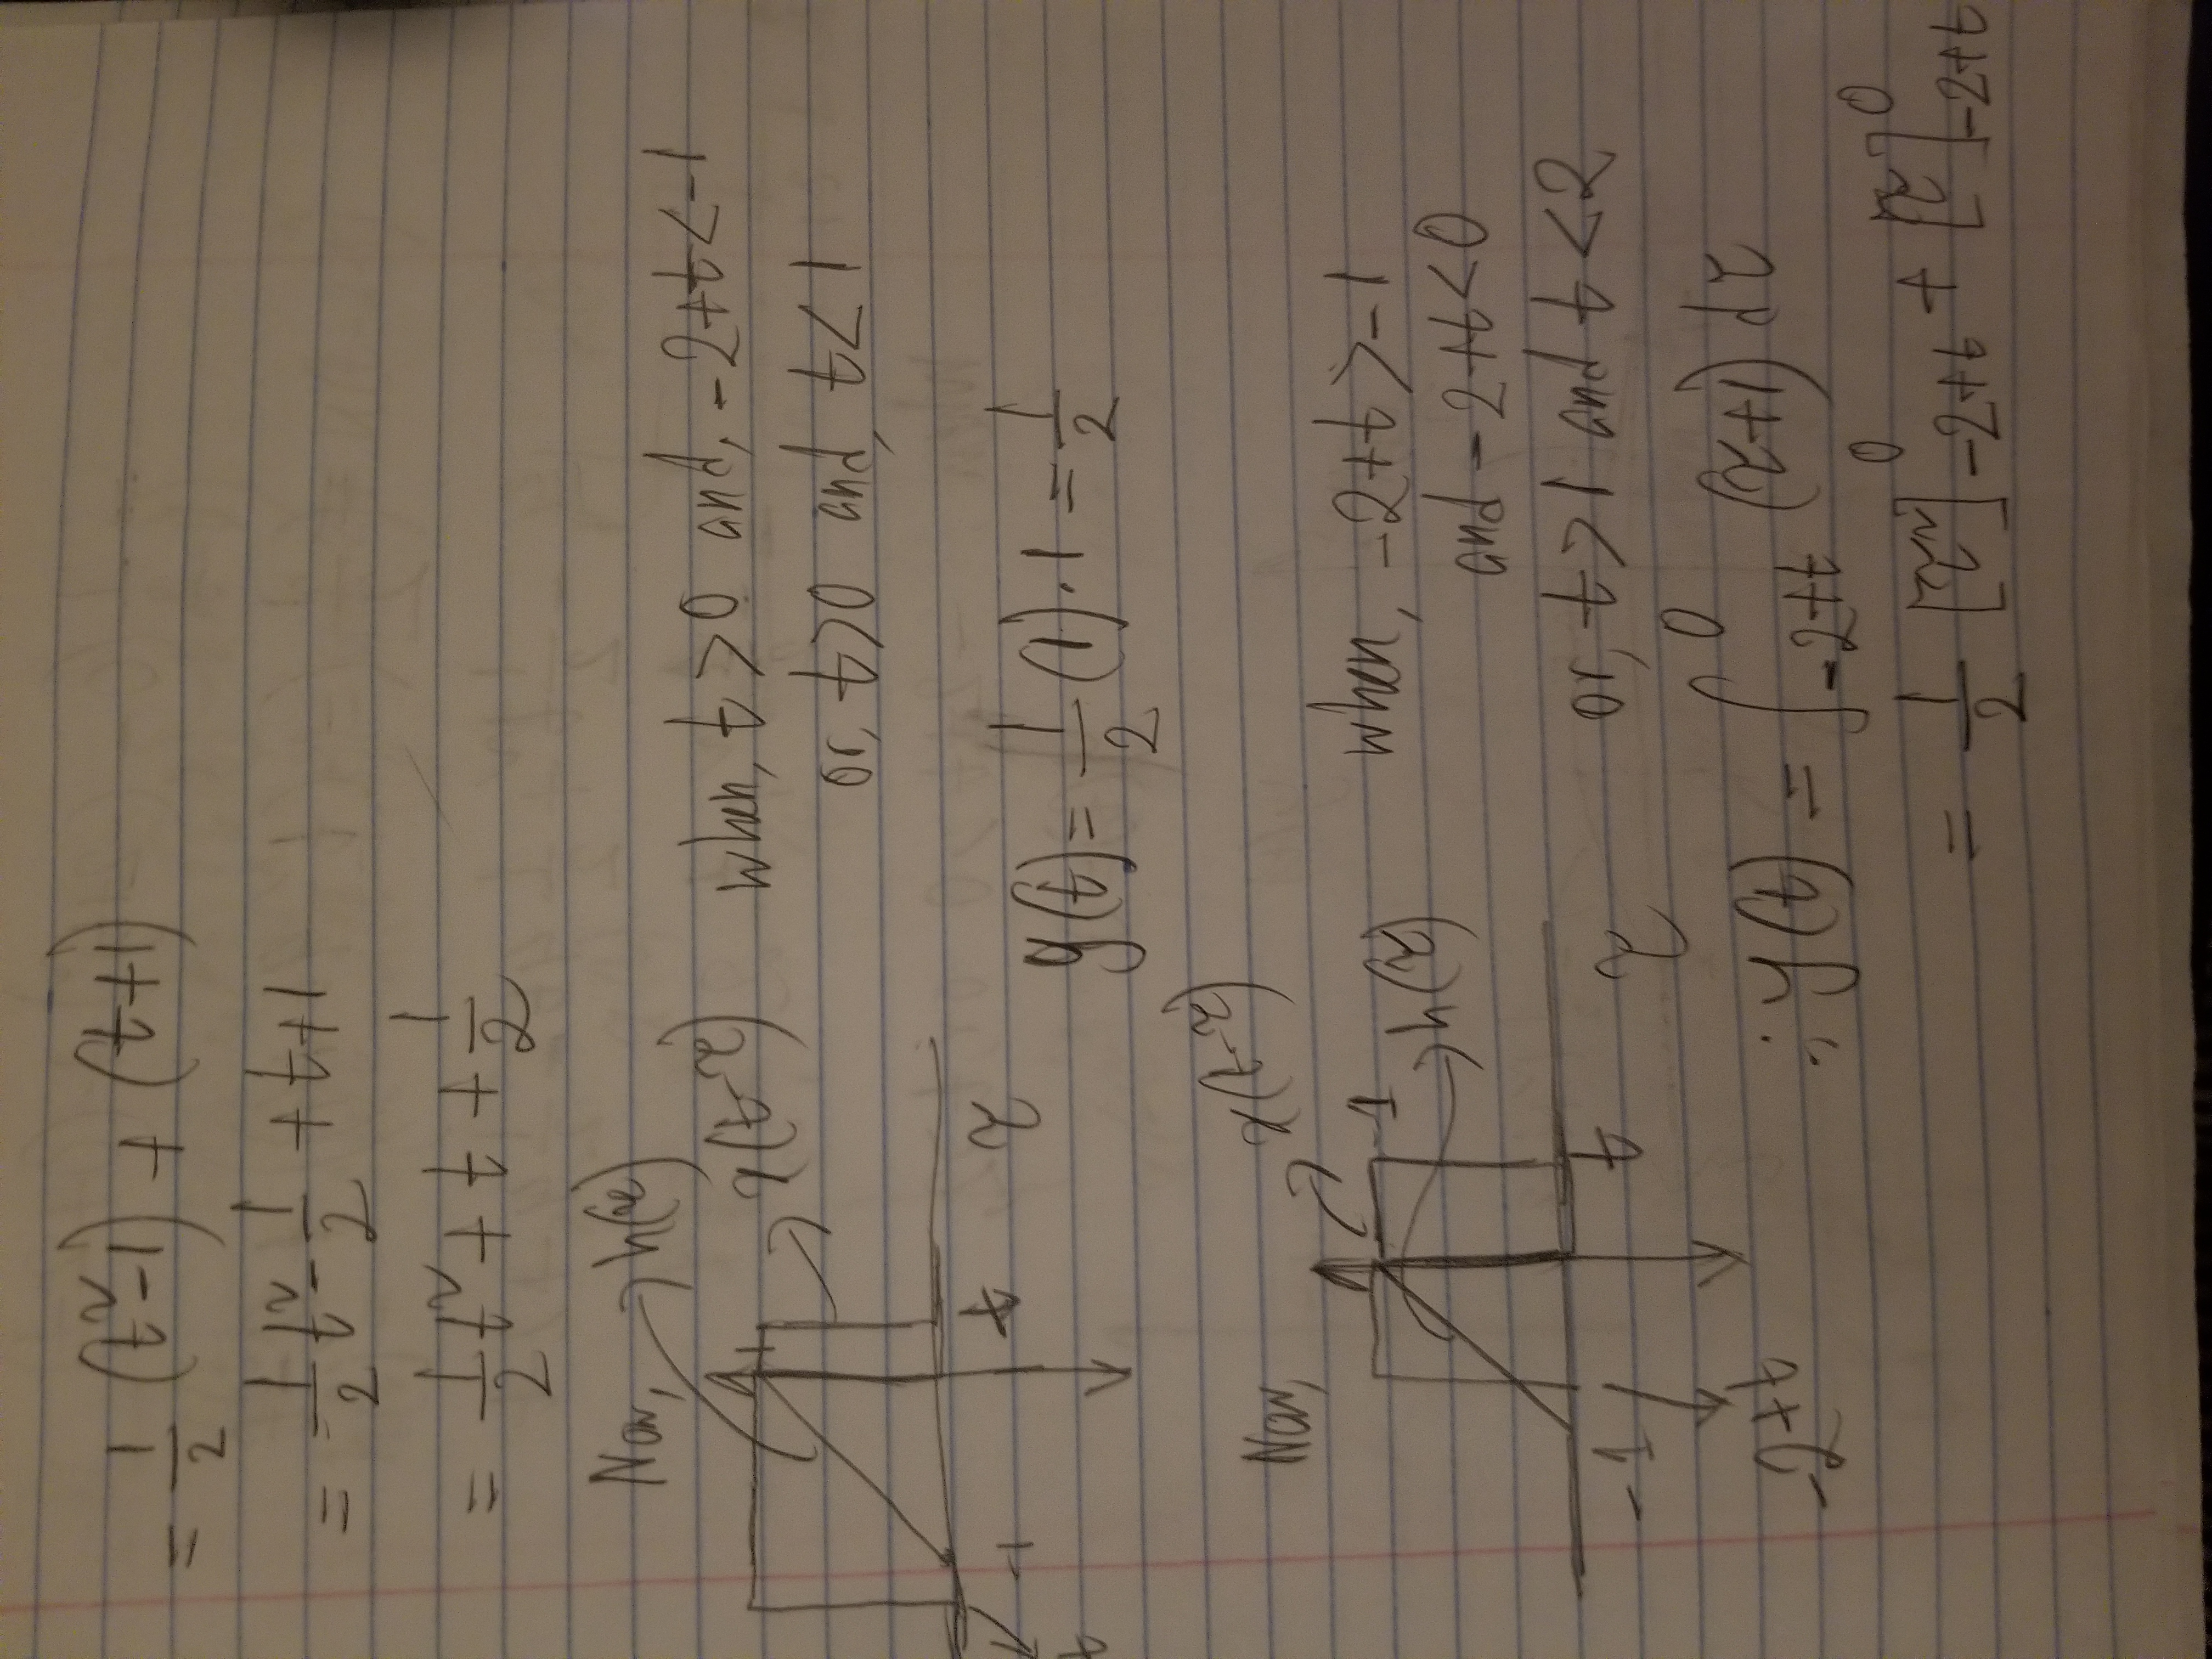 = 1/2 (t²-1) + (t+1)
= 1/2 t² - 1/2 + t+1
= 1/2 t² + t + 1/2
Now,
h(τ)
x(t-τ)
1
-1
t
τ
t
when, t>0 and, -2+t<-1
or, t>0 and, t<1
y(t) = 1/2 (1)·1 = 1/2
Now,
x(t-τ)
1
h(τ)
-1
t
τ
-2+t
when, -2+t>-1
and -2+t<0
or, t>1 and t<2
∴ y(t) = ∫_{-2+t}^{0} (τ+1) dτ
= 1/2 [τ²]_{-2+t}^{0} + [τ]_{-2+t}^{0}